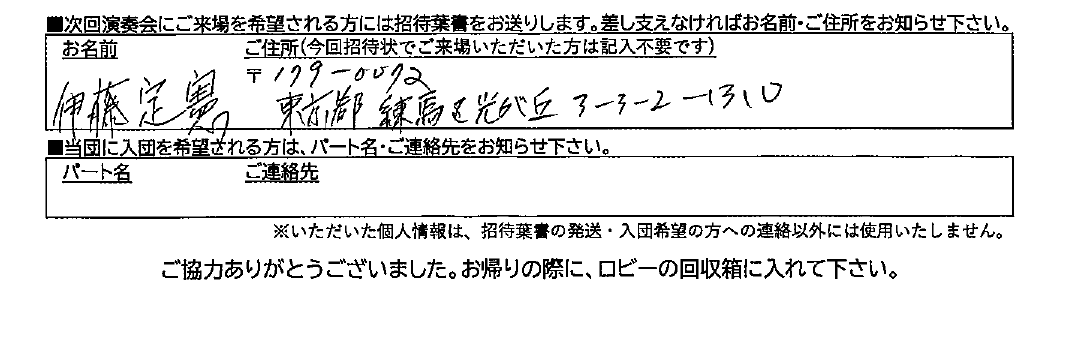 ■次回演奏会にご来場を希望される方には招待葉書をお送りします。差し支えなければお名前・ご住所をお知らせ下さい。
お名前 ご住所(今回招待状でご来場いただいた方は記入不要です)
〒179-0072
伊藤定憲 東京都練馬区光が丘3-3-2-1310
■当団に入団を希望される方は、パート名・ご連絡先をお知らせ下さい。
パート名 ご連絡先
※いただいた個人情報は、招待葉書の発送・入団希望の方への連絡以外には使用いたしません。
ご協力ありがとうございました。お帰りの際に、ロビーの回収箱に入れて下さい。